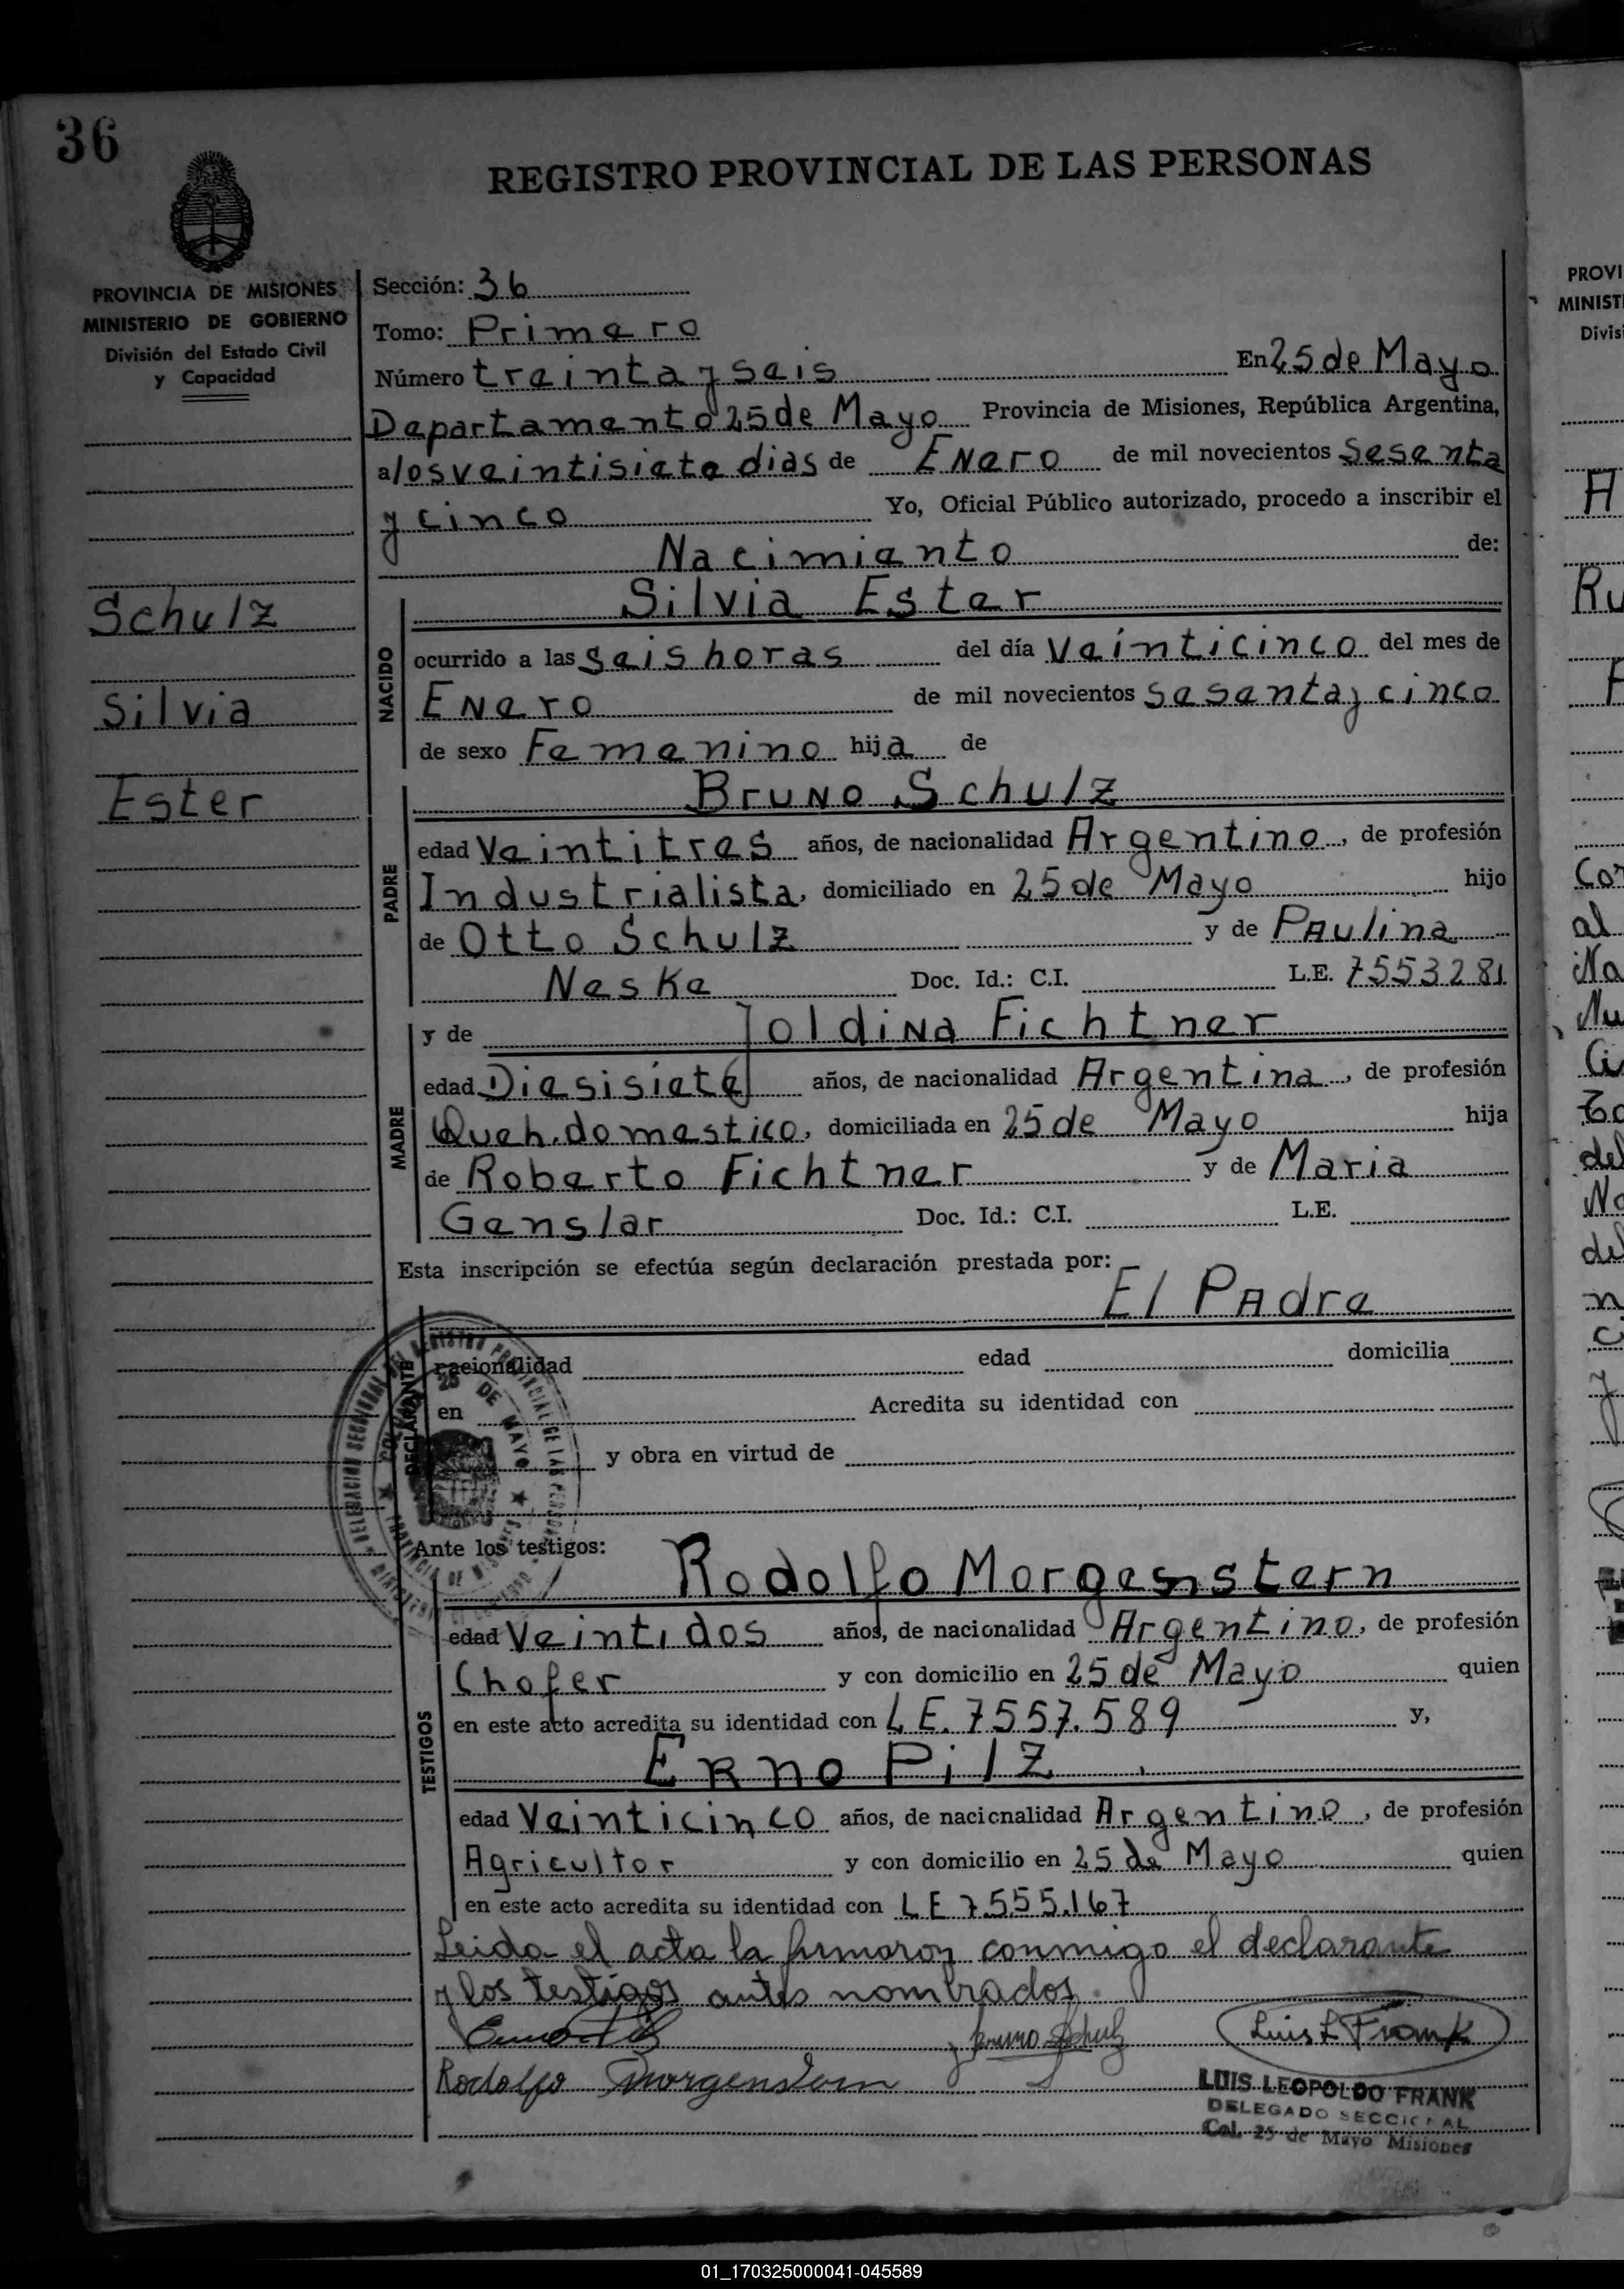 36
REGISTRO PROVINCIAL DE LAS PERSONAS
PROVINCIA DE MISIONES
MINISTERIO DE GOBIERNO
División del Estado Civil
y Capacidad
Schulz
Silvia
Ester
Sección: 36
Tomo: Primero
Número treinta y seis En 25 de Mayo
Departamento 25 de Mayo Provincia de Misiones, República Argentina,
a los veintisiete dias de Enero de mil novecientos Sesenta
y cinco Yo, Oficial Público autorizado, procedo a inscribir el
Nacimiento de:
Silvia Ester
NACIDO
ocurrido a las seis horas del día Veinticinco del mes de
Enero de mil novecientos Sesenta y cinco
de sexo Femenino hija de
Bruno Schulz
PADRE
edad Veintitres años, de nacionalidad Argentino, de profesión
Industrialista, domiciliado en 25 de Mayo hijo
de Otto Schulz y de Paulina
Neske Doc. Id.: C.I. L.E. 7553281
MADRE
y de Joldina Fichtner
edad Diesisiete años, de nacionalidad Argentina, de profesión
Queh. domestico, domiciliada en 25 de Mayo hija
de Roberto Fichtner y de Maria
Genslar Doc. Id.: C.I. L.E.
Esta inscripción se efectúa según declaración prestada por:
El Padre
DECLARANTE
nacionalidad edad domicilia
en Acredita su identidad con
y obra en virtud de
Ante los testigos:
Rodolfo Morgenstern
TESTIGOS
edad Veintidos años, de nacionalidad Argentino, de profesión
Chofer y con domicilio en 25 de Mayo quien
en este acto acredita su identidad con L E. 7557.589 y,
Erno Pilz
edad Veinticinco años, de nacionalidad Argentino, de profesión
Agricultor y con domicilio en 25 de Mayo quien
en este acto acredita su identidad con L E 7555.167
Leida el acta la firmaron conmigo el declarante
y los testigos antes nombrados.
Bruno Schulz
Luis L Frank
Rodolfo Morgenstern
LUIS LEOPOLDO FRANK
DELEGADO SECCIONAL
Col. 25 de Mayo Misiones
01_170325000041-045589